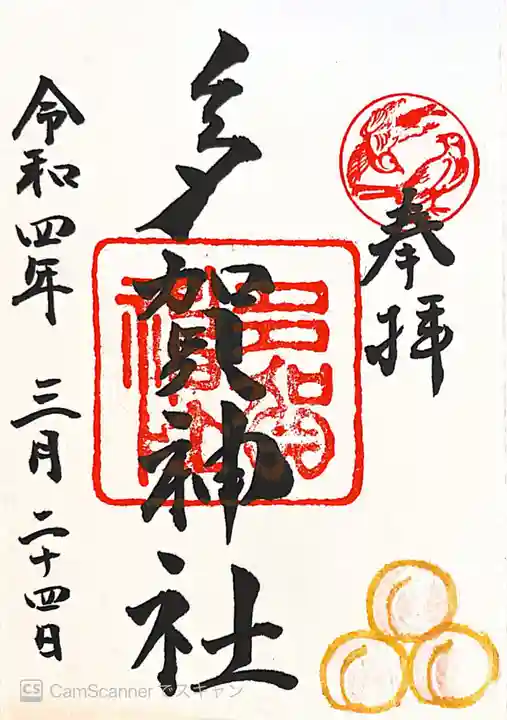 奉拝
多賀神社
令和四年 三月二十四日
CS CamScannerでスキャン